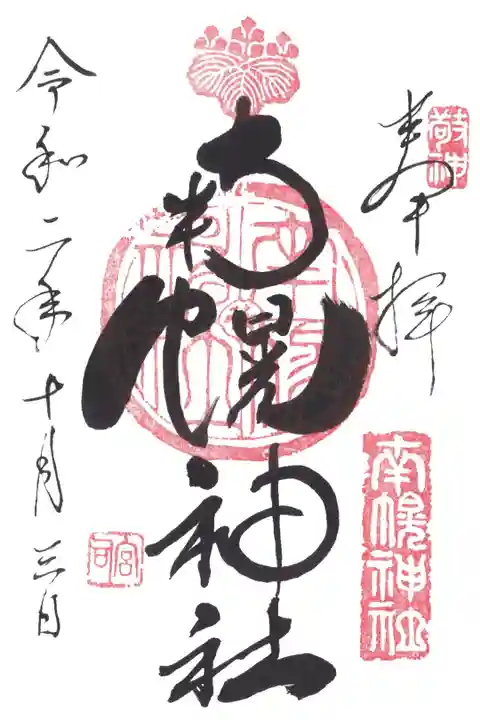 奉拝
敬神
南幌神社
南幌神社
宮司
令和二年十月三日